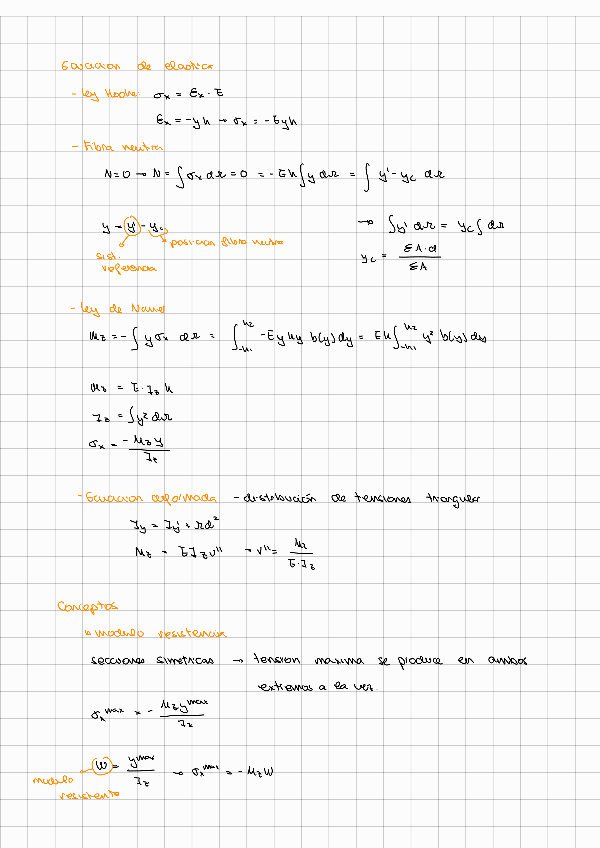 Ecuacion de elastica
- Ley Hooke: σx = εx · E
εx = -yk → σx = -Eyk
- Fibra neutra
N=0 → N = ∫σx dΩ = 0 = -Ek∫y dΩ = ∫ y' - yc dΩ
y = y' - yc
→ ∫y' dΩ = yc∫dΩ
posicion fibra neutra
sist. referencia
yc = ΣA·d / ΣA
- Ley de Navier
Mz = -∫ y σx dΩ = ∫_{-h1}^{h2} -Eyky b(y)dy = Ek∫_{-h1}^{h2} y² b(y)dy
Mz = E·Iz k
Iz = ∫y² dΩ
σx = -Mz y / Iz
- Ecuacion deformada - distribución de tensiones triangular
Iy = Iy' + Ωd²
Mz = EIzv'' → v'' = Mz / E·Iz
Conceptos
modulo resistencia
secciones simetricas → tension maxima se produce en ambos
extremos a la vez.
σx^max = - Mz y^max / Iz
W = y^max / Iz → σx^max = -MzW
modulo
resistente